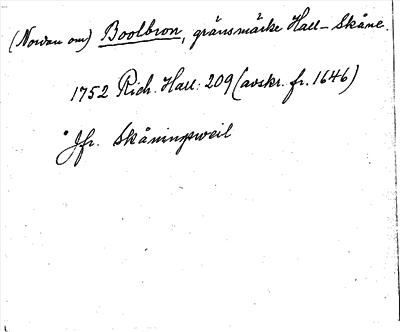 (Nordan om) Boolbron, gränsmärke Hall-Skåne.
1752 Rich. Hall: 209 (avskr. fr. 1646)
Jfr. Skåningsweil